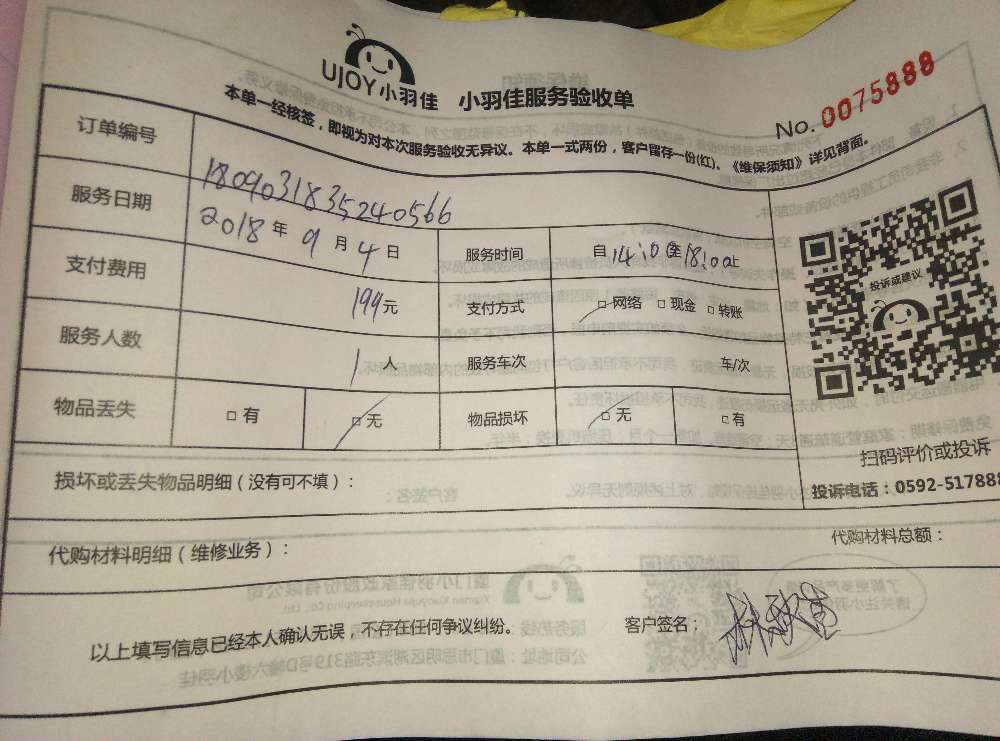 UJOY小羽佳 小羽佳服务验收单
No. 0075888
本单一经核签，即视为对本次服务验收无异议。本单一式两份，客户留存一份(红)。《维保须知》详见背面。
订单编号 1809031835240566
服务日期 2018年9月4日 服务时间 自14:00至18:00止
支付费用 199元 支付方式 □网络 □现金 □转账
服务人数 1人 服务车次 车/次
物品丢失 □有 □无 物品损坏 □无 □有
投诉或建议
扫码评价或投诉
投诉电话：0592-517888
损坏或丢失物品明细（没有可不填）：
代购材料明细（维修业务）： 代购材料总额：
以上填写信息已经本人确认无误，不存在任何争议纠纷。 客户签名：